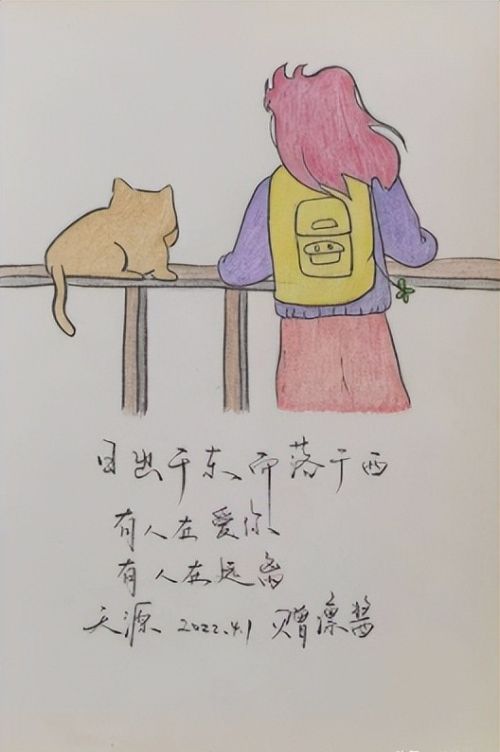 日出于东、而落于西
有人在爱你
有人在远离
天源 2022.4.1 赠凛酱